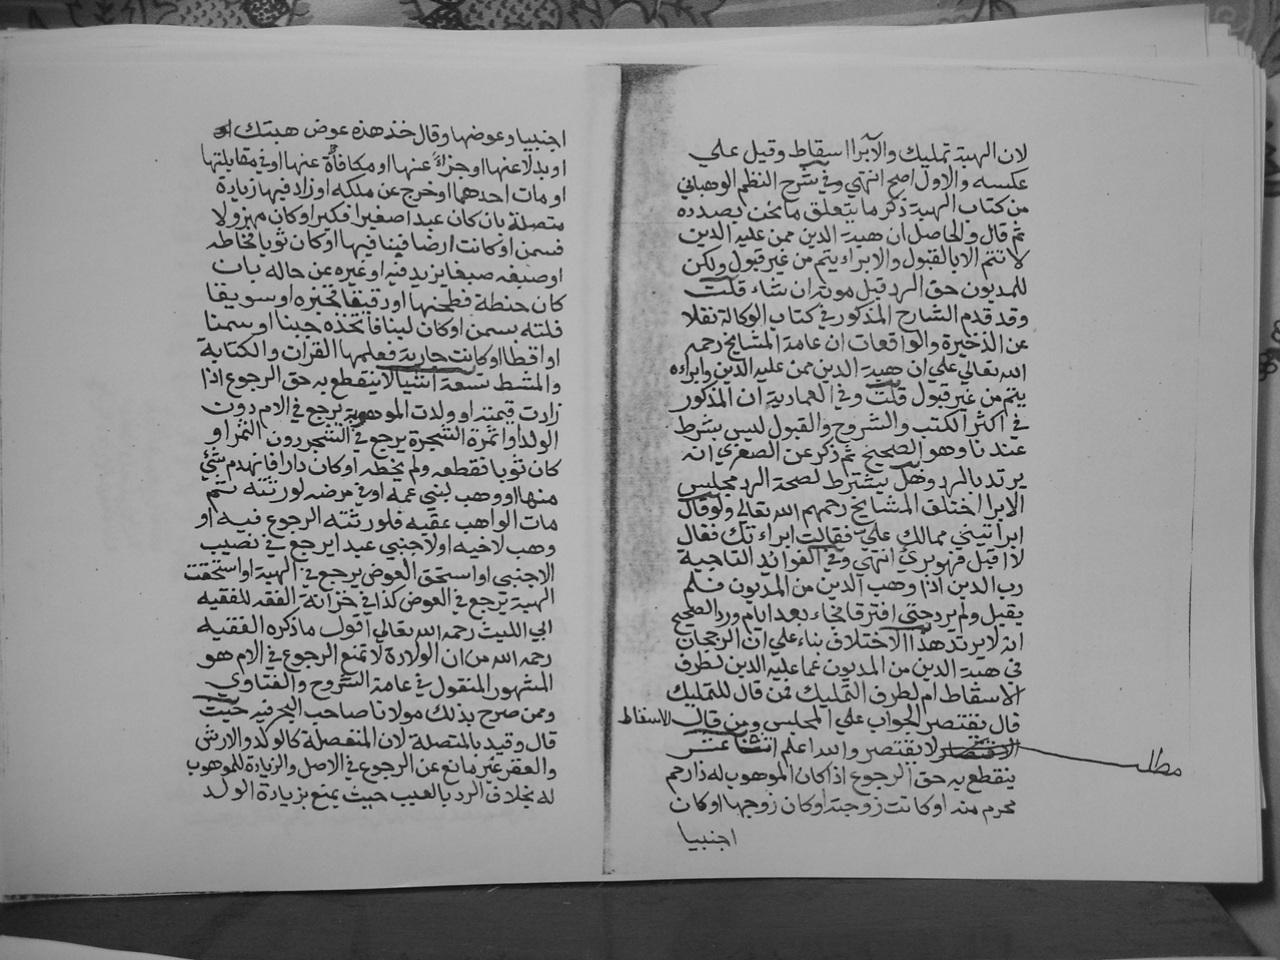 لان الهبة تمليك والابرا اسقاط وقيل علي
عكسه والاول اصح انتهي وفي شرح النظم الوهباني
من كتاب الهبة ذكر ما يتعلق ما نحن بصدده
ثم قال والحاصل ان هبة الدين ممن عليه الدين
لا تتم الا بالقبول والابراء يتم من غير قبول ولكن
للمديون حق الرد قبل موته ان شاء قلت
وقد قدم الشارح المذكور في كتاب الوكالة نقلا
عن الذخيرة والواقعات ان عامة المشايخ رحمهم
الله تعالي علي ان هبة الدين ممن عليه الدين وابراءه
يتم من غير قبول قلت وفي العمادية ان المذكور
في اكثر الكتب والشروح والقبول ليس بشرط
عندنا وهو الصحيح ثم ذكر عن الصغري انه
يرتد بالرد وهل يشترط لصحة الرد مجلس
الابرا اختلف المشايخ رحمهم الله تعالي ولو قال
ابراتيني ممالك علي فقالت ابراءتك فقال
لا اقبل فهو بري انتهي وفي الفوائد التاجية
رب الدين اذا وهب الدين من المديون فلم
يقبل ولم يرد حتي افترقا فجاء بعد ايام ورد الصحيح
انه لا يرتد هذا الاختلاف بناء علي ان الرجحان
في هبة الدين من المديون عما عليه الدين لطرف
الاسقاط ام لطرف التمليك فمن قال للتمليك
قال يقتصر الجواب علي المجلس ومن قال للاسقاط
لا يقتصر والله اعلم اثنا عشر
مطلب
ينقطع به حق الرجوع اذا كان الموهوب له ذا رحم
محرم منه او كانت زوجته او كان زوجها او كان
اجنبيا
اجنبيا وعوضها وقال خذ هذه عوض هبتك
او بدلا عنها او جزاء عنها او مكافأة عنها او في مقابلتها
او مات احدهما او خرج عن ملكه او زاد فيها زيادة
متصلة بان كان عبدا صغيرا فكبر او كان مهزولا
فسمن او كانت ارضا فبنا فيها او كان ثوبا فخاطه
او صبغه صبغا يزيد فيه او غيره عن حاله بان
كان حنطة فطحنها او دقيقا فخبزه او سويقا
فلته بسمن او كان لبنا فاتخذه جبنا او سمنا
او اقطا او كانت جارية فعلمها القران والكتابة
والمشط تسعة اشيا لا ينقطع به حق الرجوع اذا
زادت قيمته او ولدت الموهوبة يرجع في الام دون
الولد او اثمرة الشجرة يرجع في الشجر دون الثمر او
كان ثوبا فقطعه ولم يخطه او كان دارا فانهدم شئ
منها او وهب لبني عمه او في مرضه لورثته ثم
مات الواهب عقبه فلورثته الرجوع فيه او
وهب لاخيه او لاجنبي عبدا يرجع في نصيب
الاجنبي او استحق العوض يرجع في الهبة او استحقت
الهبة يرجع في العوض كذا في خزانة الفقه للفقيه
ابي الليث رحمه الله تعالي اقول ما ذكره الفقيه
رحمه الله من ان الولادة لا تمنع الرجوع في الام هو
المشهور المنقول في عامة الشروح والفتاوي
وممن صرح بذلك مولانا صاحب البحر فيه حيث
قال وقيد بالمتصلة لان المنفصلة كالولد والارش
والعقر غير مانع عن الرجوع في الاصل والزيادة للموهوب
له بخلاف الرد بالعيب حيث يمنع بزيادة الولد